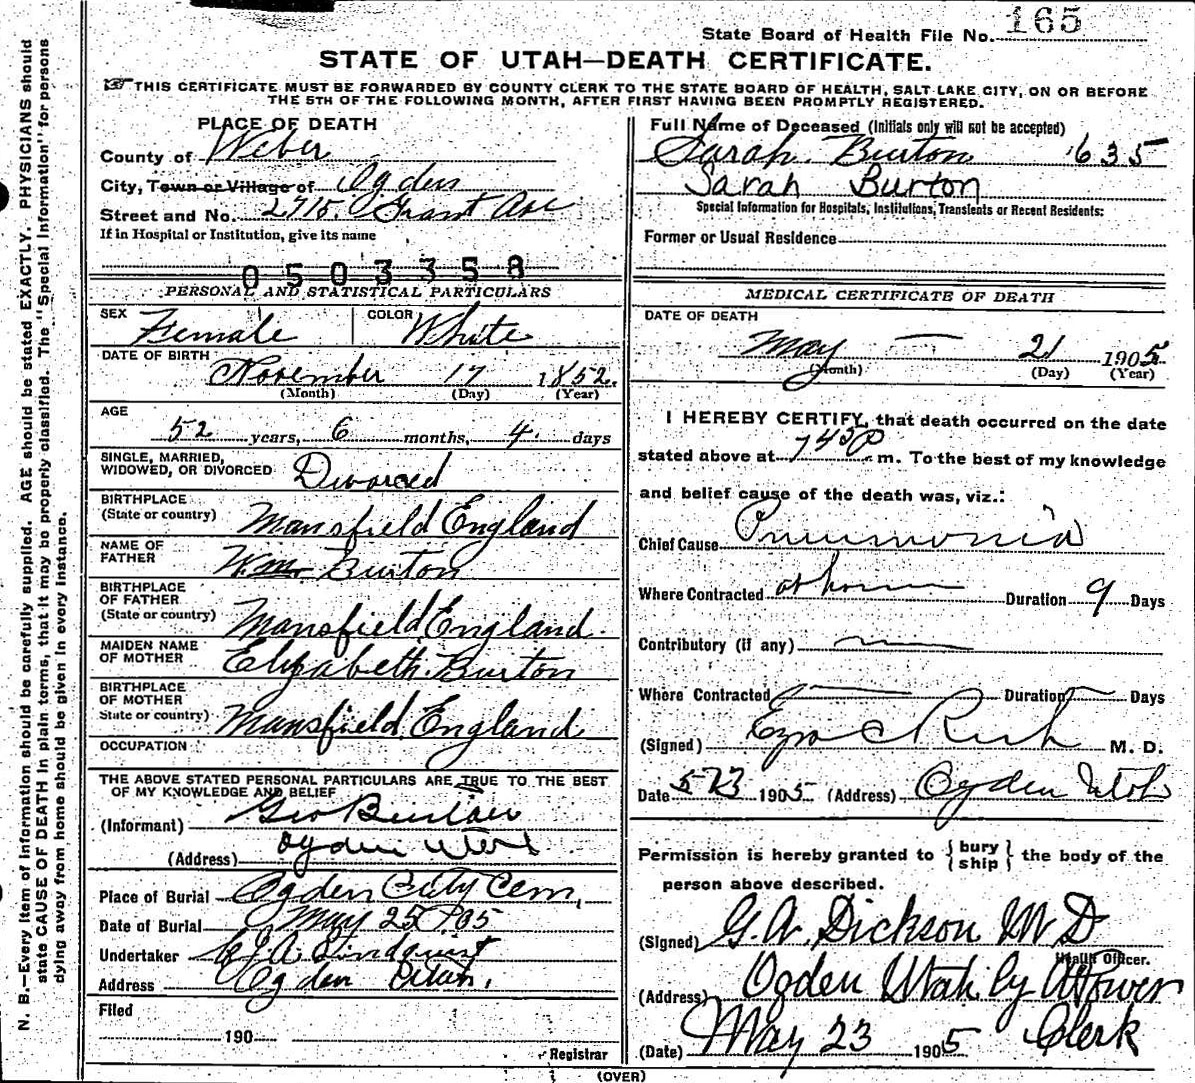 State Board of Health File No. 165
STATE OF UTAH—DEATH CERTIFICATE.
THIS CERTIFICATE MUST BE FORWARDED BY COUNTY CLERK TO THE STATE BOARD OF HEALTH, SALT LAKE CITY, ON OR BEFORE
THE 5TH OF THE FOLLOWING MONTH, AFTER FIRST HAVING BEEN PROMPTLY REGISTERED.
N. B.—Every item of information should be carefully supplied. AGE should be stated EXACTLY. PHYSICIANS should
state CAUSE OF DEATH in plain terms, that it may be properly classified. The "Special Information" for persons
dying away from home should be given in every instance.
PLACE OF DEATH
County of Weber
City, Town or Village of Ogden
Street and No. 2715 Grant Ave
If in Hospital or Institution, give its name
0503358
PERSONAL AND STATISTICAL PARTICULARS
SEX Female COLOR White
DATE OF BIRTH November 17 1852.
(Month) (Day) (Year)
AGE
52 years, 6 months, 4 days
SINGLE, MARRIED,
WIDOWED, OR DIVORCED Divorced
BIRTHPLACE
(State or country) Mansfield England
NAME OF
FATHER Wm Burton
BIRTHPLACE
OF FATHER
(State or country) Mansfield England
MAIDEN NAME
OF MOTHER Elizabeth Burton
BIRTHPLACE
OF MOTHER
State or country) Mansfield England
OCCUPATION
THE ABOVE STATED PERSONAL PARTICULARS ARE TRUE TO THE BEST
OF MY KNOWLEDGE AND BELIEF
(Informant) Geo Burton
(Address) Ogden Utah
Place of Burial Ogden City Cem,
Date of Burial May 25 05
Undertaker Lindquist
Address Ogden Utah.
Filed
190
Registrar
Full Name of Deceased (Initials only will not be accepted)
Sarah Burton 1635
Sarah Burton
Special Information for Hospitals, Institutions, Transients or Recent Residents:
Former or Usual Residence
MEDICAL CERTIFICATE OF DEATH
DATE OF DEATH
May — 21 1905
(Month) (Day) (Year)
I HEREBY CERTIFY, that death occurred on the date
stated above at 745 P m. To the best of my knowledge
and belief cause of the death was, viz.:
Chief Cause Pneumonia
Where Contracted at home Duration 9 Days
Contributory (if any)
Where Contracted Duration Days
(Signed) Ezra C Rich M. D.
Date 5/23 1905 (Address) Ogden Utah
Permission is hereby granted to { bury
ship } the body of the
person above described.
(Signed) G. W. Dickson M D
Health Officer.
(Address) Ogden Utah by Power
(Date) May 23 1905 Clerk
(OVER)